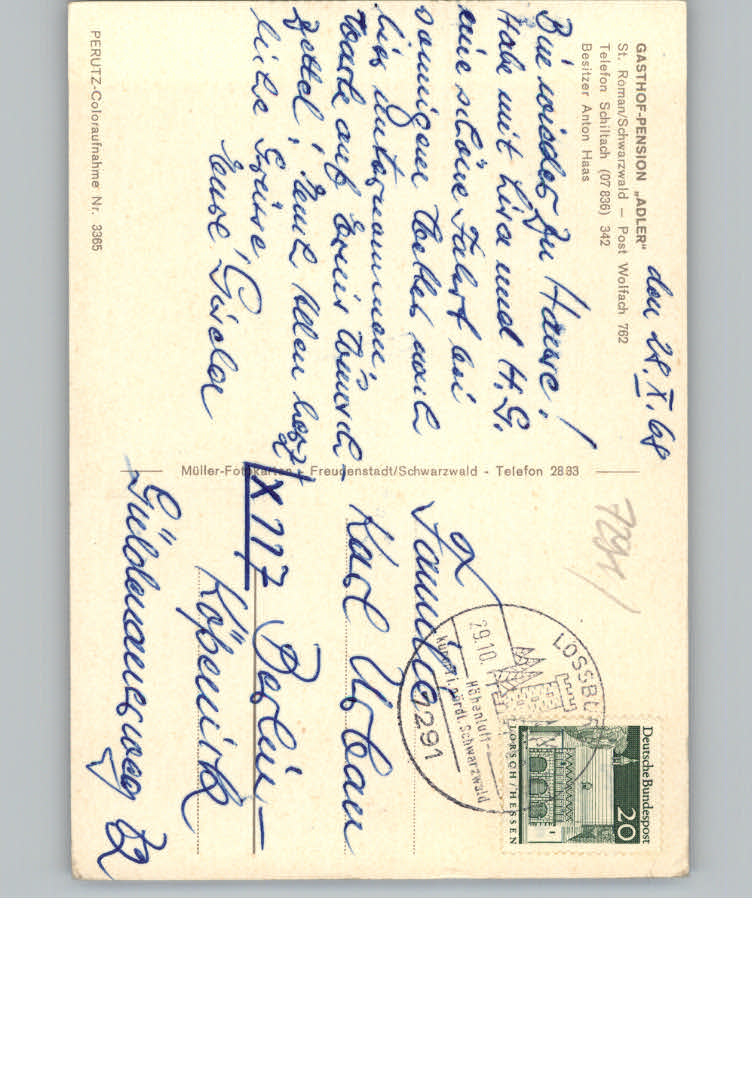 GASTHOF-PENSION „ADLER"
St. Roman/Schwarzwald — Post Wolfach 762
Telefon Schiltach (07 836) 342
Besitzer Anton Haas
den 28. X. 68
Bin wieder zu Hause!
Habe mit Lisa und H. G.
eine schöne Fahrt bei
sonnigem Wetter nach
hier unternommen.
Warte auf Wunsch-
zettel! Euch allen herzl
liebe Grüsse
Eure Gisela
PERUTZ-Coloraufnahme Nr. 3365
Müller-Fotokarten - Freudenstadt/Schwarzwald - Telefon 2893
7291
LOSSBU
29.10.
Höhenluft-
kurort i. nördl. Schwarzwald
7291
Deutsche Bundespost
20
LORSCH / HESSEN
Familie
Karl Urban
X 117 Berlin-
Köpenick
72